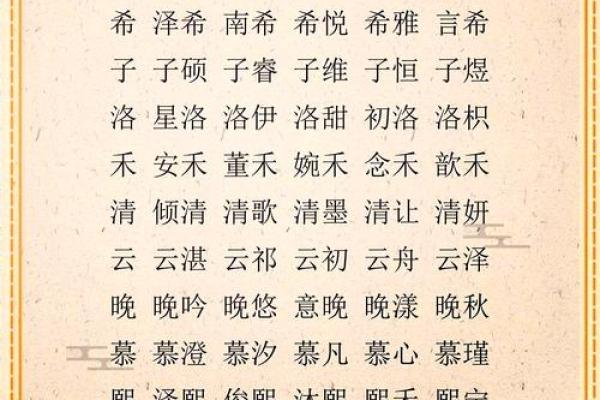 希 泽希 南希 希悦 希雅 言希
子 子硕 子睿 子维 子恒 子煜
洛 星洛 洛伊 洛甜 初洛 洛枳
禾 安禾 董禾 婉禾 念禾 歆禾
清 倾清 清歌 清墨 清让 清妍
云 云湛 云祁 云初 云舟 云泽
晚 晚吟 晚悠 意晚 晚漾 晚秋
慕 慕澄 慕汐 慕凡 慕心 慕瑾
熙 泽熙 俊熙 沐熙 熙